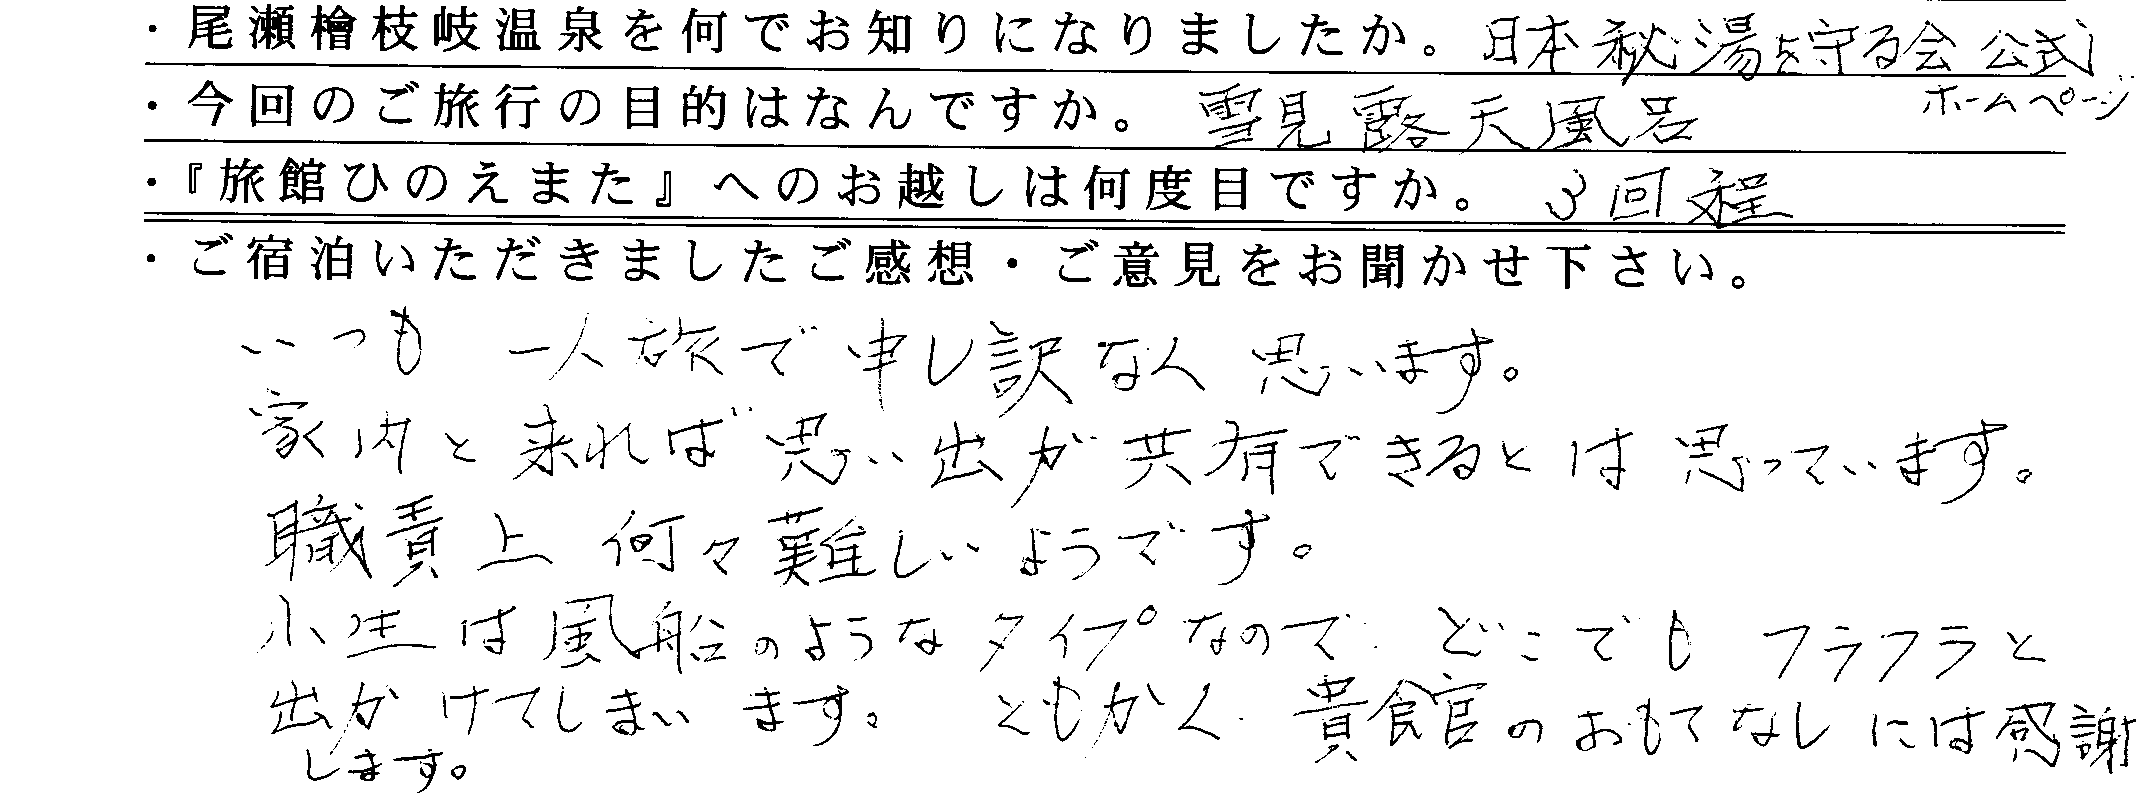 ・尾瀬檜枝岐温泉を何でお知りになりましたか。日本秘湯を守る会 公式
ホームページ
・今回のご旅行の目的はなんですか。雪見露天風呂
・『旅館ひのえまた』へのお越しは何度目ですか。3回程
・ご宿泊いただきましたご感想・ご意見をお聞かせ下さい。
いつも 一人旅で 申し訳なく 思います。
家内と来れば 思い出が共有できるとは思っています。
職責上 何々難しいようです。
小生は風船のようなタイプなので どこでも フラフラと
出かけてしまいます。 ともかく 貴館のおもてなしには感謝
します。